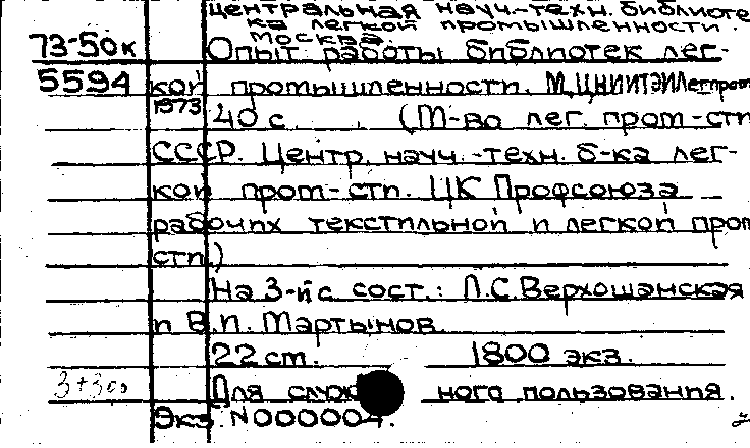 Центральная науч.-техн. библиоте
ка легкой промышленности.
Москва
73-50к Опыт работы библиотек лег-
5594 кой промышленности. М., ЦНИИТЭИЛегпром
1973
40 с. (М-во лег. пром-сти
СССР. Центр. науч.-техн. б-ка лег-
кой пром-сти. ЦК Профсоюза
рабочих текстильной и легкой пром
сти.)
На 3-й с. сост.: Л.С. Верхошанская
и В.П. Мартынов.
22 ст. 1800 экз.
Для служ ного пользования.
Экз. N000004.